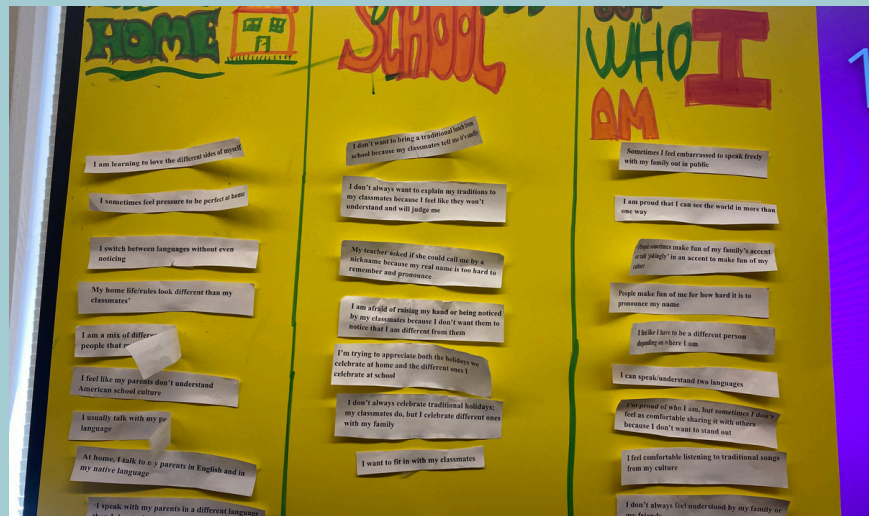 HOME
I am learning to love the different sides of myself
I sometimes feel pressure to be perfect at home
I switch between languages without even
noticing
My home life/rules look different than my
classmates'
I am a mix of
people that
I feel like my parents don't understand
American school culture
I usually talk with my
language
At home, I talk to my parents in English and in
my native language
I speak with my parents in a different language
SCHOOL
I don't want to bring a traditional lunch from
school because my classmates tell me it's smelly
I don't always want to explain my traditions to
my classmates because I feel like they won't
understand and will judge me
My teacher asked if she could call me by a
nickname because my real name is too hard to
remember and pronounce
I am afraid of raising my hand or being noticed
by my classmates because I don't want them to
notice that I am different from them
I'm trying to appreciate both the holidays we
celebrate at home and the different ones I
celebrate at school
I don't always celebrate traditional holidays;
my classmates do, but I celebrate different ones
with my family
I want to fit in with my classmates
WHO I
AM
Sometimes I feel embarrassed to speak freely
with my family out in public
I am proud that I can see the world in more than
one way
People sometimes make fun of my family's accent
or talk 'jokingly' in an accent to make fun of my
culture
People make fun of me for how hard it is to
pronounce my name
I feel like I have to be a different person
depending on where I am
I can speak/understand two languages
I'm proud of who I am, but sometimes I don't
feel as comfortable sharing it with others
because I don't want to stand out
I feel comfortable listening to traditional songs
from my culture
I don't always feel understood by my family or
1